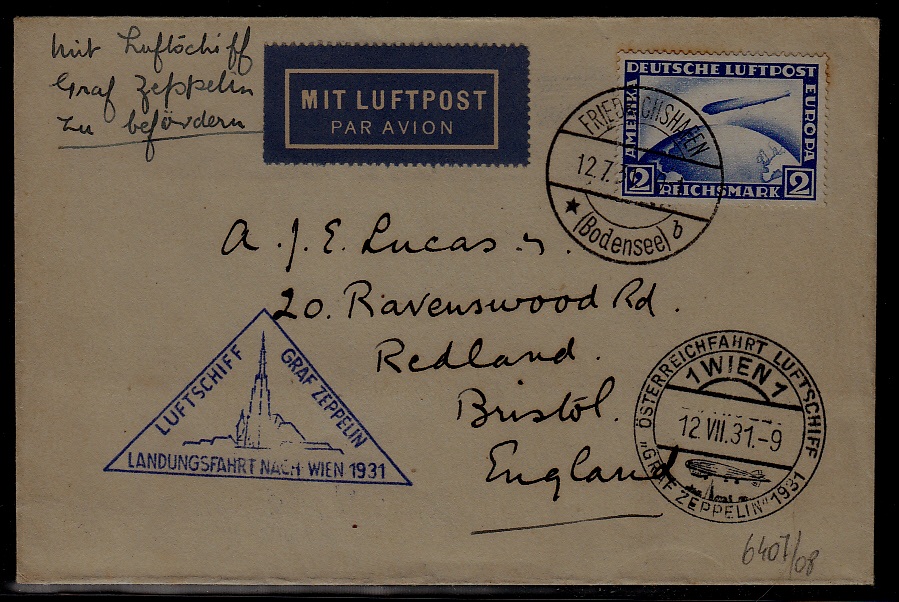 Mit Luftschiff
Graf Zeppelin
zu befördern
MIT LUFTPOST
PAR AVION
DEUTSCHE LUFTPOST
AMERIKA
EUROPA
2 REICHSMARK 2
FRIEDRICHSHAFEN
12.7.31
(Bodensee) b
A. J. E. Lucas
20. Ravenswood Rd.
Redland.
Bristol.
England
LUFTSCHIFF GRAF ZEPPELIN
LANDUNGSFAHRT NACH WIEN 1931
ÖSTERREICHFAHRT LUFTSCHIFF
1 WIEN 1
12.VII.31.-9
„GRAF ZEPPELIN" 1931
6407/08